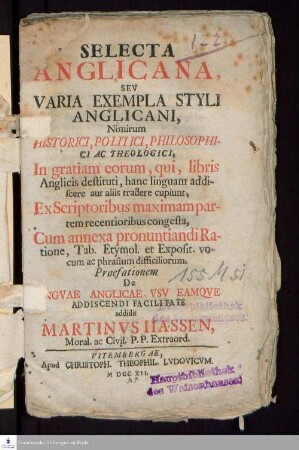 1-2
SELECTA
ANGLICANA,
SEV
VARIA EXEMPLA STYLI
ANGLICANI,
Nimirum
HISTORICI, POLITICI, PHILOSOPHI-
CI AC THEOLOGICI,
In gratiam eorum, qui, libris
Anglicis destituti, hanc linguam addi-
scere aut aliis tradere cupiunt,
Ex Scriptoribus maximam par-
tem recentioribus congesta,
Cum annexa pronuntiandi Ra-
tione, Tab. Etymol. et Exposit. vo-
cum ac phrasium difficiliorum.
Præfationem
De
NGVAE ANGLICAE VSV EAMQVE
ADDISCENDI FACILITATE
addidit
MARTINVS HASSEN,
Moral. ac Civil. P. P. Extraord.
VITEMBERGAE,
Apud CHRISTOPH. THEOPHIL. LVDOVICVM.
M DCC XII.
Hauptbibliothek
des Waisenhauses